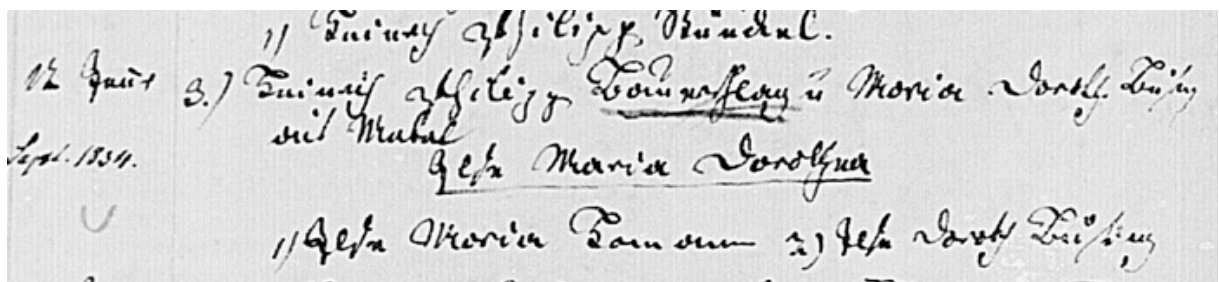 1) Heinrich Philipp Kündel.
12 Janr 3.) Heinrich Philipp Bauerschlag u Maria Doroth Büsing
aus Mabal
Sept. 1834. Ilse Maria Dorothea
1) Ilse Maria 2) Ilse Doroth Büsing